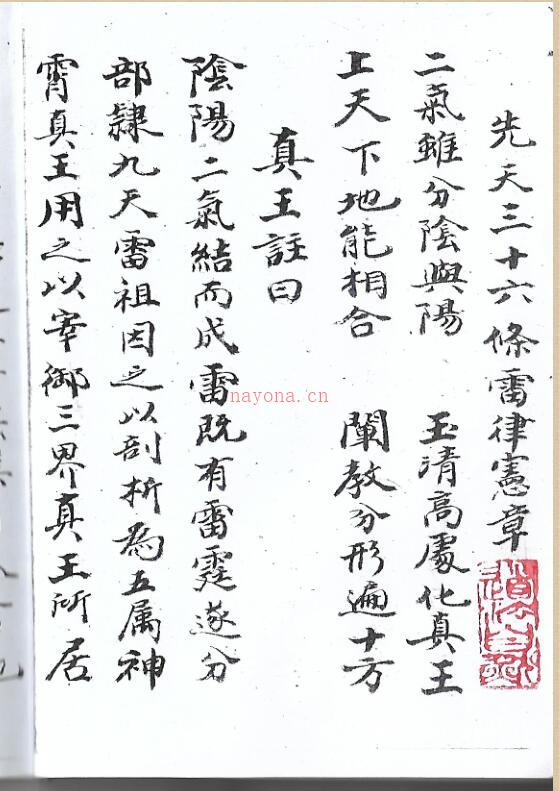 先天三十六條雷律憲章
二氣雖分陰與陽 玉清高處化真王
上天下地能相合 闡教分形遍十方
真王註曰
陰陽二氣結而成雷既有雷霆遂分
部隸九天雷祖因之以剖析為五属神
霄真王用之以宰御三界真王所居
nayona.cn